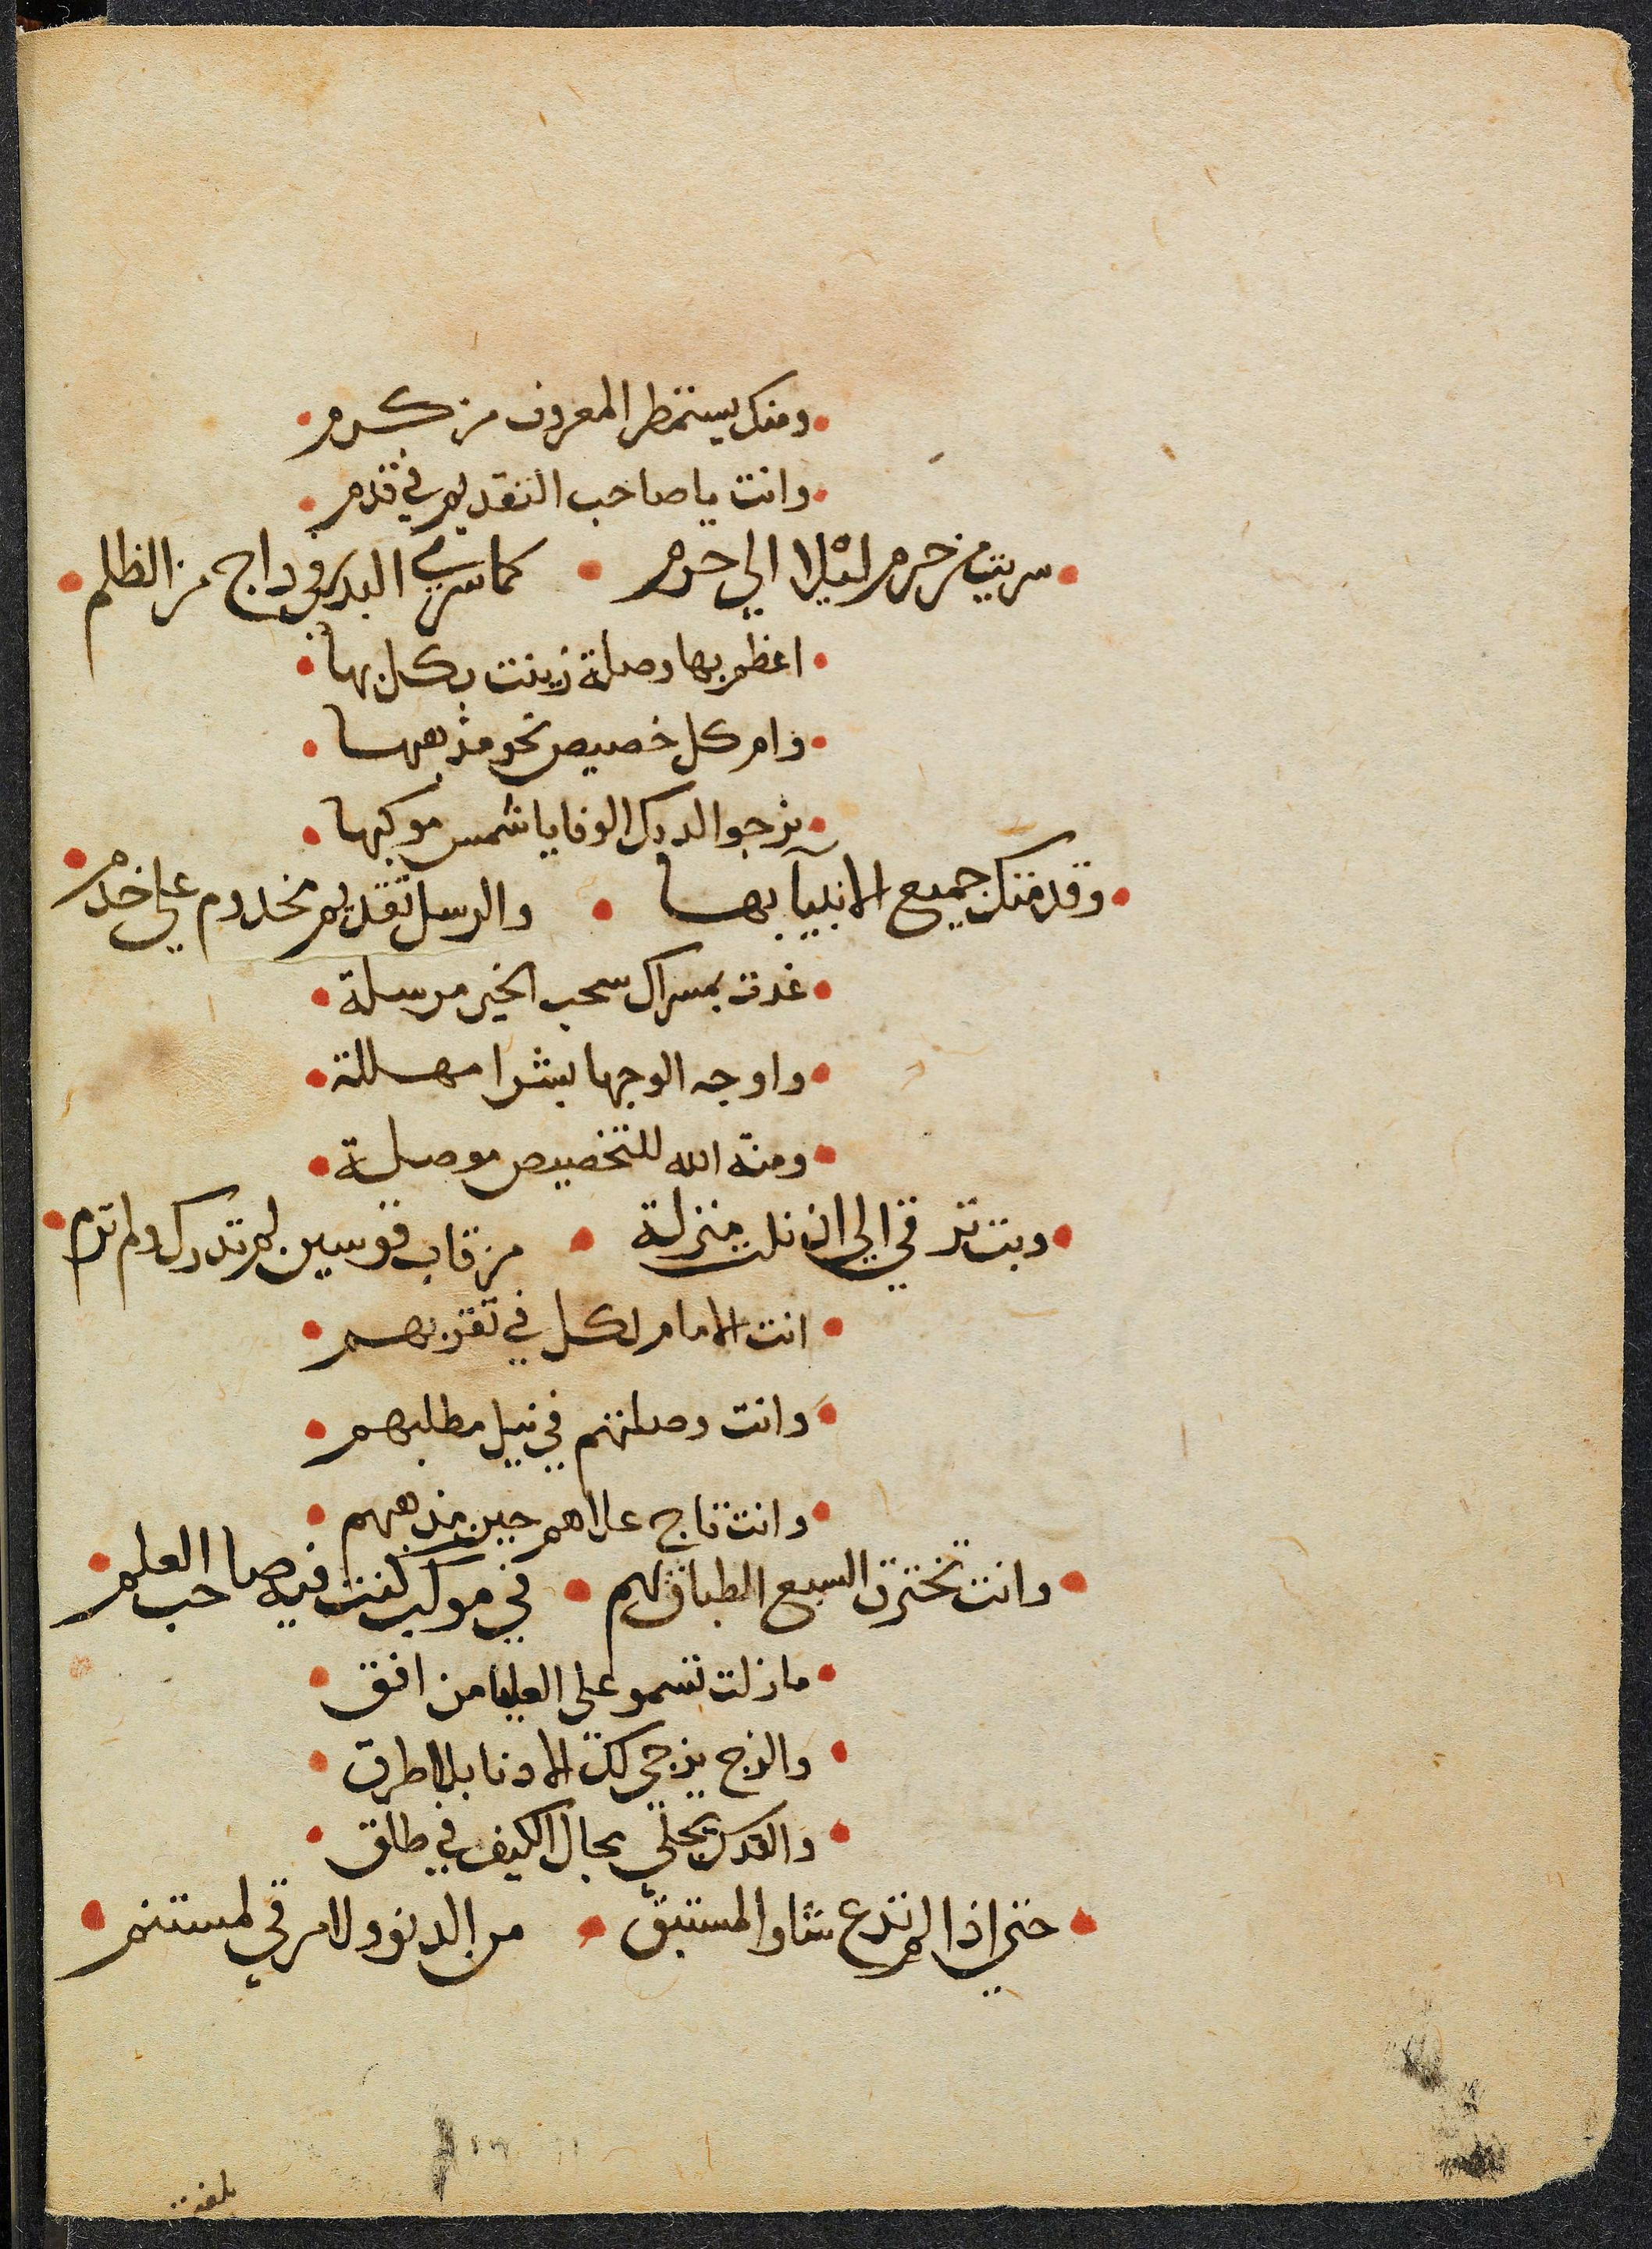 ومنك يستمطر المعروف من كرم
وانت يا صاحب التقديم في قدم
سريت من حرم ليلا الي حرم كما سري البدر في داج من الظلم
اعظم بها وصلة زينت بكل بها
وام كل خصيص نحو مذهبها
نرجوا لديك الوفا يا شمس موكبها
وقدمتك جميع الانبيا بها والرسل تقديم مخدوم علي خدم
غدت بمسراك سحب الخير مرسلة
واوجه الوجها بشرا مهللة
ومنة الله للتخصيص موصلة
وبت ترقي الي ان نلت منزلة من قاب قوسين لم تدرك ولم ترم
انت الامام لكل في تقربهم
وانت وصلتهم في نيل مطلبهم
وانت تاج علاهم حين مذهبهم
وانت تخترق السبع الطباق بهم في موكب كنت فيه صاحب العلم
ما زلت تسمو على العليا من افق
والزج يزجي لك الادنا بلا طرق
والقدر يجلي بحال الكيف في طلق
حتي اذا لم تدع شاوا لمستبق من الدنو ولا مرقي لمستنم
بلغت